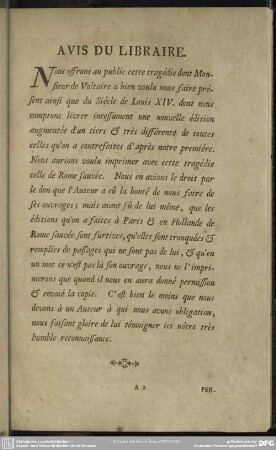 AVIS DU LIBRAIRE.
Nous offrons au public cette tragédie dont Mon-
sieur de Voltaire a bien voulu nous faire pré-
sent ainsi que du Siécle de Louis XIV. dont nous
comptons livrer incessament une nouvelle édition
augmentée d'un tiers & très différente de toutes
celles qu'on a contrefaites d'après notre première.
Nous aurions voulu imprimer avec cette tragédie
celle de Rome sauvée. Nous en avions le droit par
le don que l'Auteur a eû la bonté de nous faire de
ses ouvrages; mais aiant sû de lui même, que les
éditions qu'on a faites à Paris & en Hollande de
Rome sauvée sont furtives, qu'elles sont tronquées &
remplies de passages qui ne sont pas de lui, & qu'en
un mot ce n'est pas là son ouvrage, nous ne l'impri-
merons que quand il nous en aura donné permission
& envoié la copie. C'est bien le moins que nous
devons à un Auteur à qui nous avons obligation,
nous faisant gloire de lui témoigner ici nôtre très
humble reconnaissance.
A 2 PER-